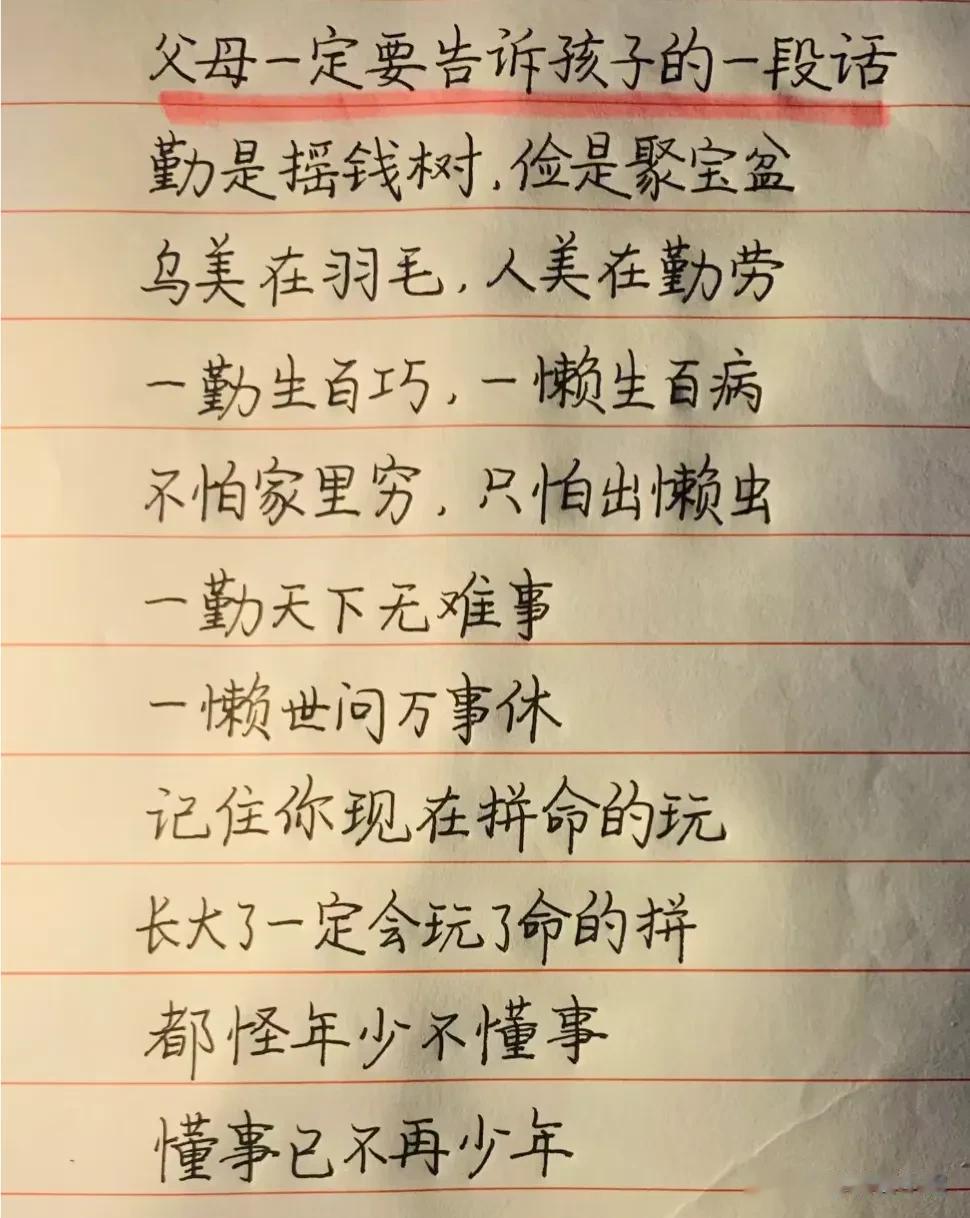 父母一定要告诉孩子的一段话
勤是摇钱树，俭是聚宝盆
鸟美在羽毛，人美在勤劳
一勤生百巧，一懒生百病
不怕家里穷，只怕出懒虫
一勤天下无难事
一懒世间万事休
记住你现在拼命的玩
长大了一定会玩了命的拼
都怪年少不懂事
懂事已不再少年